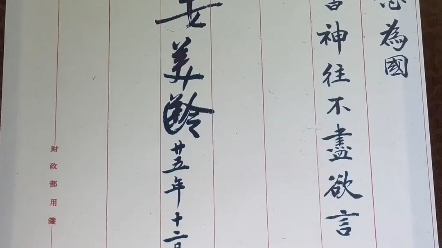 為國
神往不盡欲言
美齡廿五年十二
財政部用箋